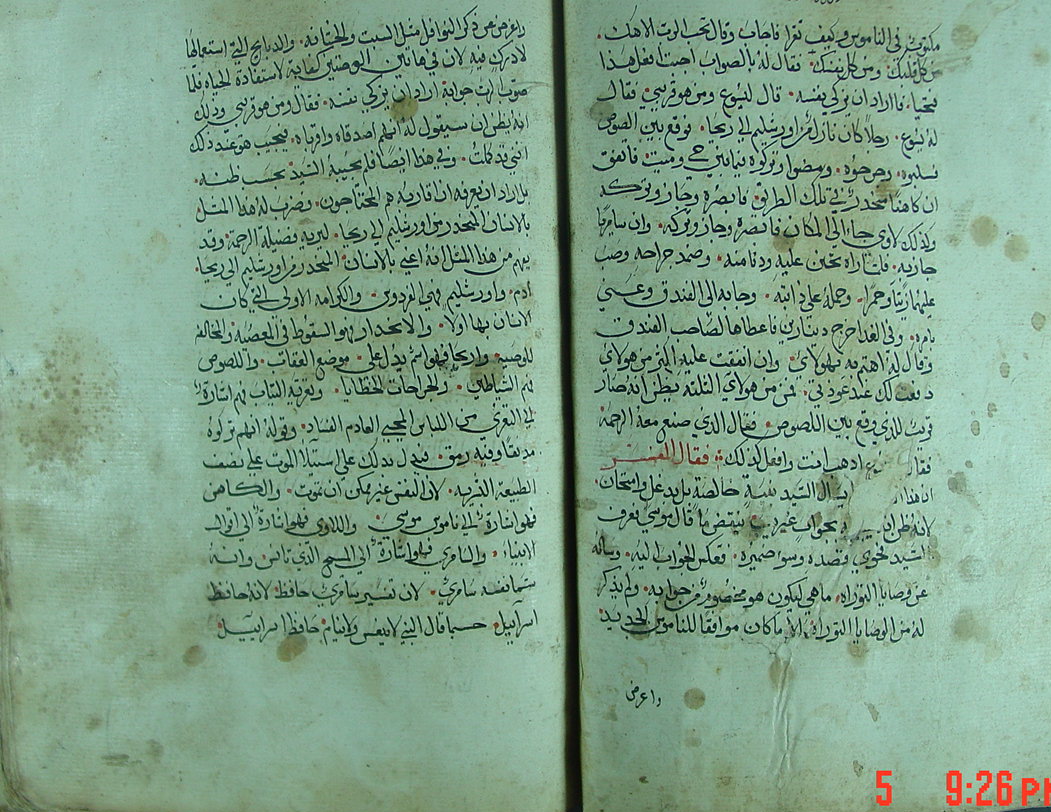 مكتوب في الناموس وكيف تقرا فاجاب وقال تحب الرب الاهك
من كل قلبك ومن كل نفسك فقال له بالصواب اجبت افعل هذا
فتحيا فاراد ان يزكي نفسه قال ليسوع ومن هو قريبي فقال
له يسوع رجلا كان نازلا من اورشليم الي ريحا فوقع بين اللصوص
فسلبوه وجرحوه ومضوا وتركوه فيما بين حي وميت فاتفق
ان كاهنا منحدر في تلك الطريق فابصره وجاز وتركه
وكذلك لاوي جا الى المكان فابصره وجاز وتركه وان سامريا
جاز به فلما راه تحنن عليه ودنا منه وضمد جراحه وصب
عليها زيتا وخمرا وحمله على دابته وجا به الى الفندق وعني
بامره وفي الغد اخرج دينارين فاعطاها لصاحب الفندق
وقال له اهتم به فهولاي وان انفقت عليه اكثر من هولاي
دفعت لك عند عودتي فمن من هولاي الثلثه تظن انه صار
قريب للذي وقع بين اللصوص فقال الذي صنع معه الرحمة
فقال اذهب انت وافعل كذلك فقال المفسر
ان هذا يسال السيد بنية خالصة بل بدغل وامتحان
لانه ظن بجواب غريب ينقض ما قال موسى فعرف
السيد فحوي قصده وسو ضميره فعكس الجواب اليه وساله
عن وصايا التوراه ما هي ليكون هو مخصوم من جوابه ولم يذكر
له من الوصايا التوراه الا ما كان موافقا للناموس الجديد
واعرض
واعرض عن ذكر النوافل مثل السبت والختانه والذبايح التي استعمالها
لا درك فيه لان في هاتين الوصيتين كفاية لاستفادة الحياه فلما
صوب الرب جوابه اراد ان يزكي نفسه فقال ومن هو قريبي وذلك
انه يظن ان سيقول له انهم اصدقاه واقرباه فيجيب هو عند ذلك
انني قد كملت وفي هذا ايضا فلم يجيبه السيد بحسب ظنه
بل اراد ان يعرفه ان قاريبه هم المحتاجون وضرب له هذا المثل
بالانسان المنحدر من اورشليم الي ريحا ليريه فضيلة الرحمة وقد
يفهم من هذا المثل انه اعني بالانسان المنحدر من اورشليم الي ريحا
ادم واورشليم فهي الفردوس والكرامه الاولى التي كان
الانسان بها اولا والانحدار فهو السقوط في المعصيه والمخالفه
للوصيه واريحا فهو اسم يدل على موضع العقاب واللصوص
هم الشياطين والجراحات الخطايا وتعرية التياب فهم اشارة
الى التعري من اللباس المحيي العادم الفساد وقوله انهم تركوه
وفيه رمق فيدل بذلك على استيلا الموت على نصف
الطبيعة البشريه لان النفس غير ممكن ان تموت والكاهن
فهو اشارة الى ناموس موسى واللاوي فهو اشارة الى اقوال
الانبيا والسامري فهو اشارة الى المسيح الذي تانس وانه
سما نفسه سامري لان تفسير سامري حافظ لانه حافظ
اسرآييل حسبما قال النبي لا ينعس ولا ينام حافظ اسراييل